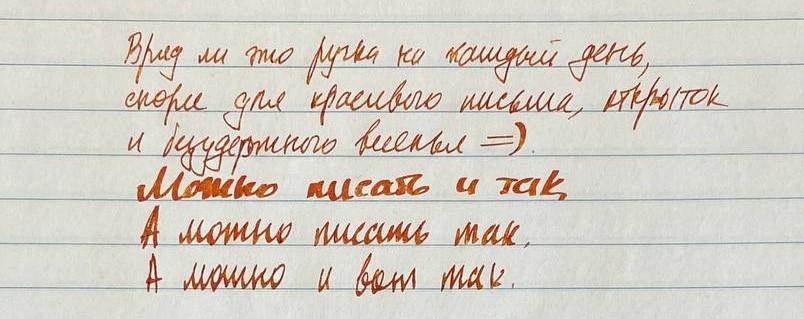 Вряд ли это ручка на каждый день,
скорее для красивого письма, открыток
и безудержного веселья =).
Можно писать и так,
А можно писать так.
А можно и вот так.